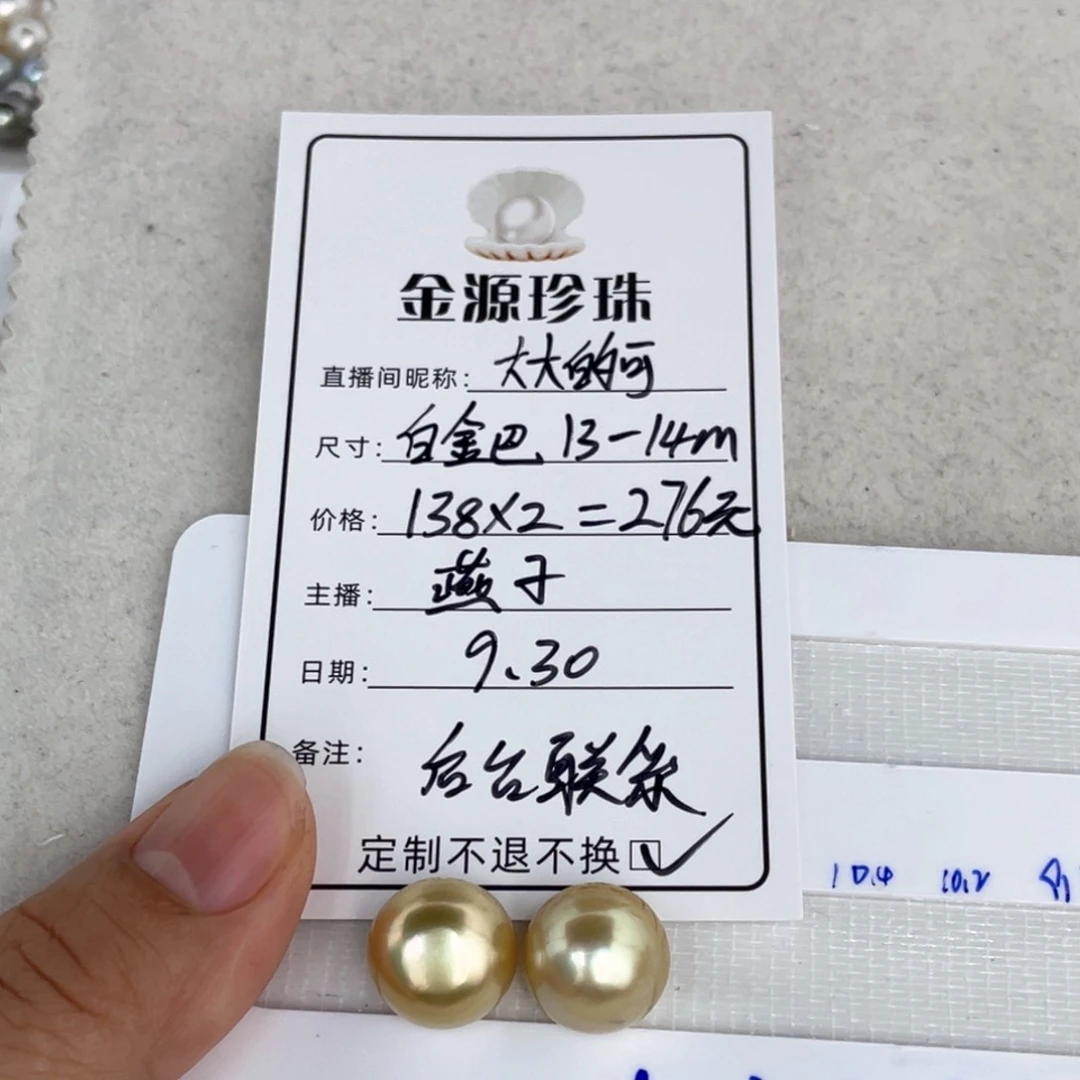 金源珍珠
直播间昵称: 大大的可
尺寸: 白金巴、13-14m
价格: 138×2=276元
主播: 燕子
日期: 9.30
备注: 后台联系
定制不退不换☑
10.4 10.2